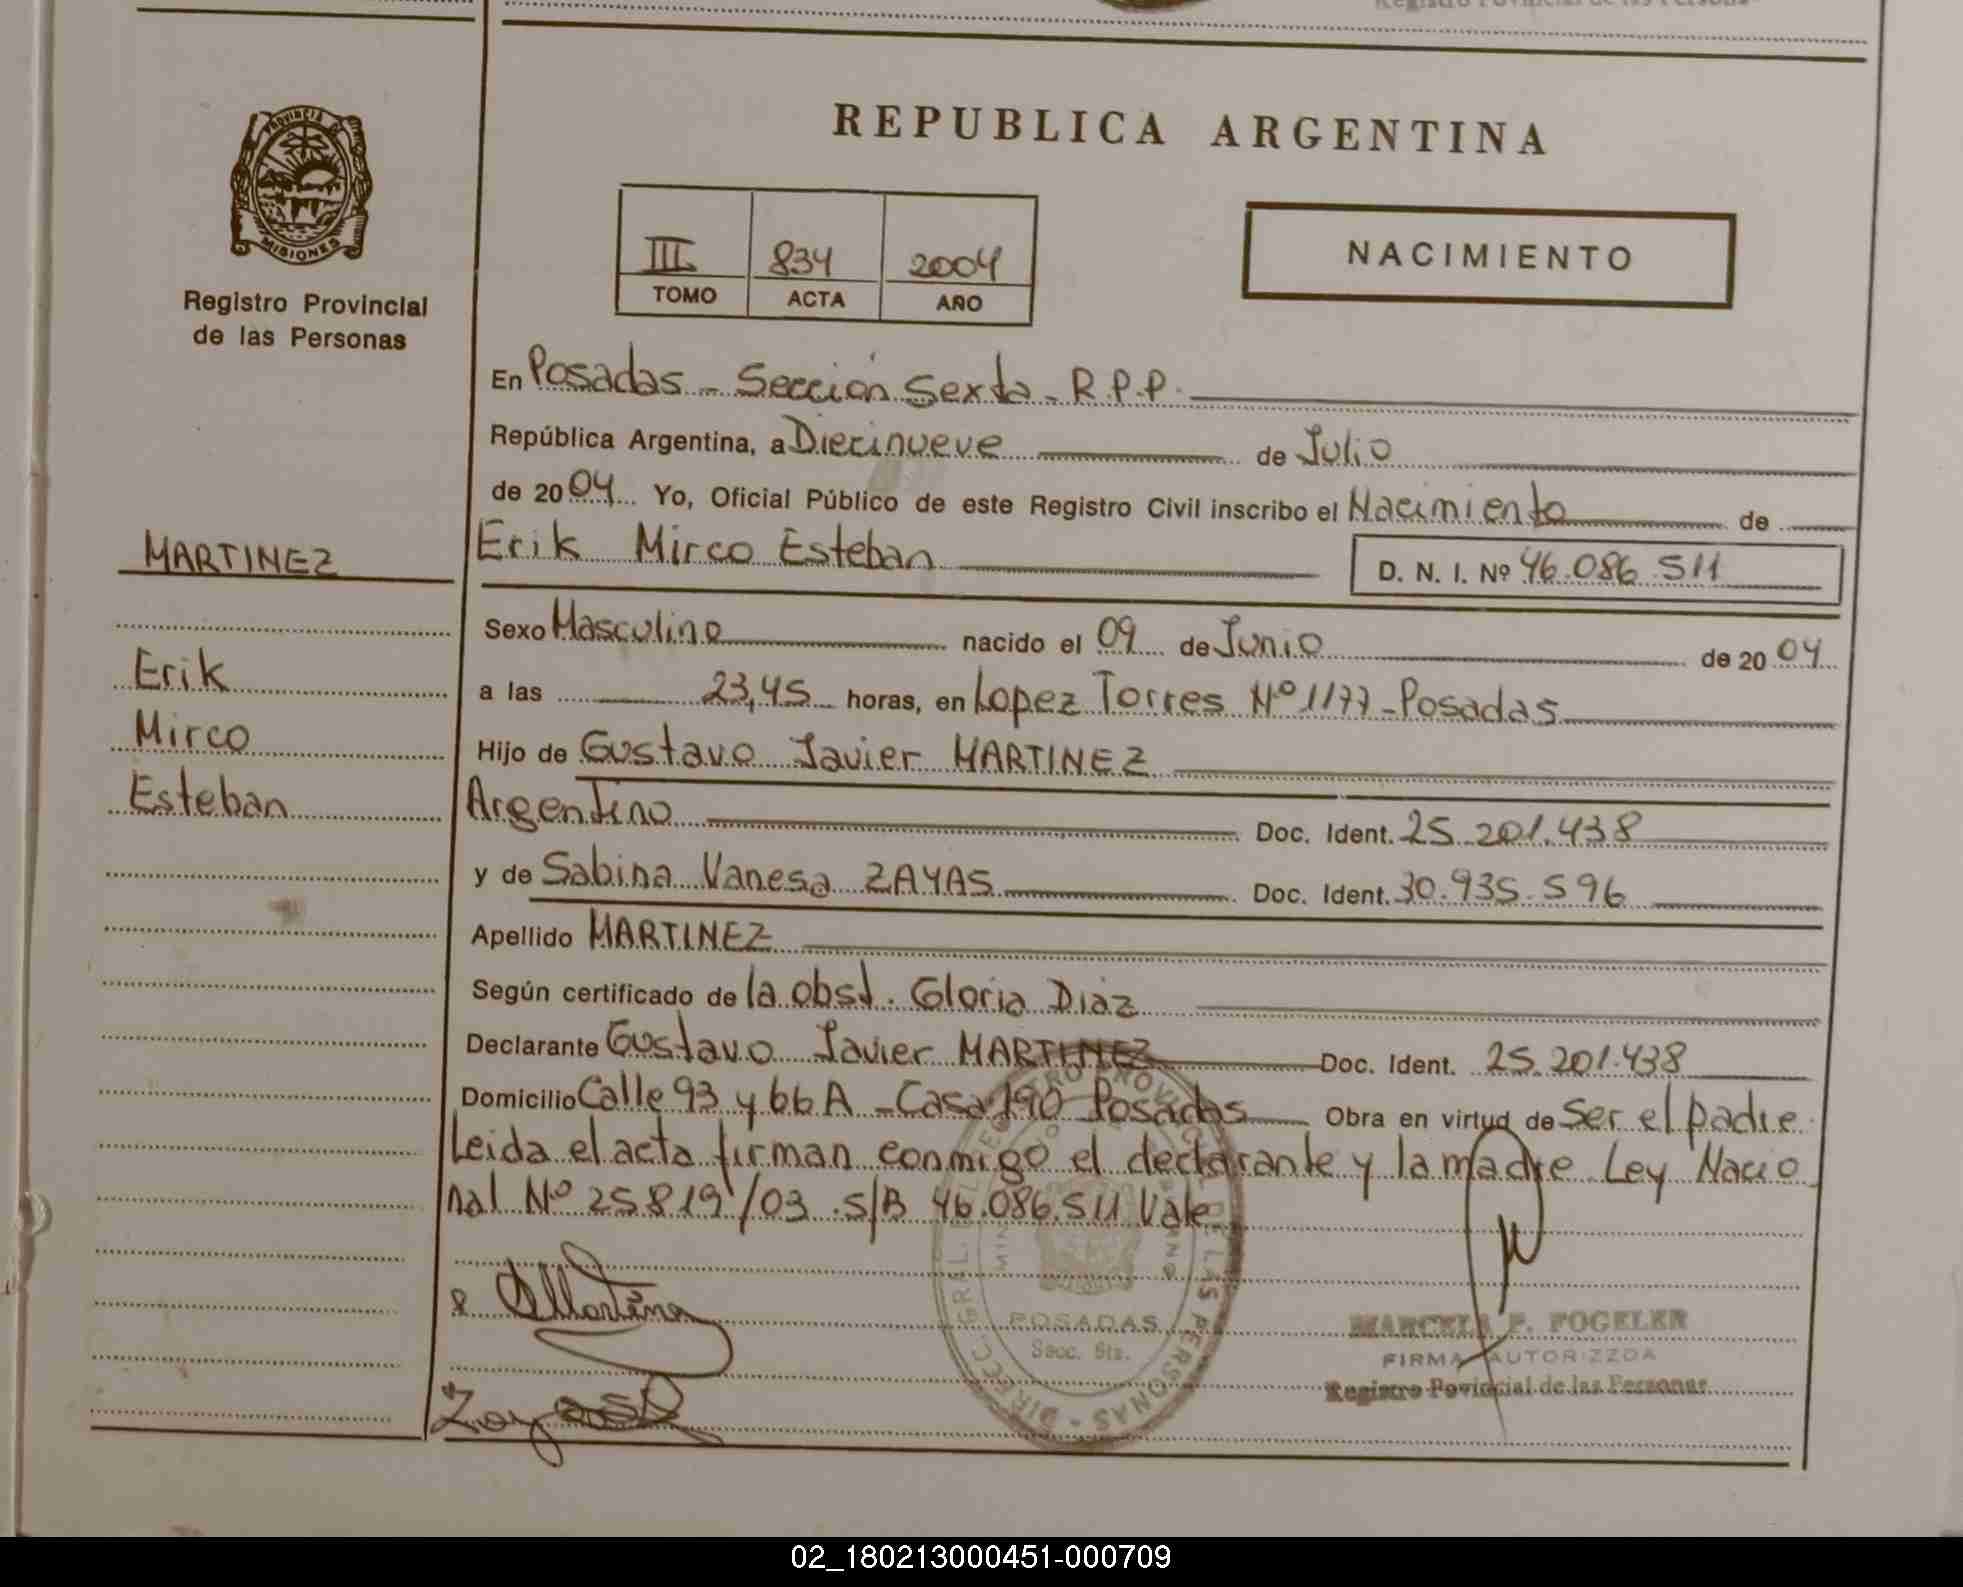 REPUBLICA ARGENTINA
PROVINCIA DE
MISIONES
Registro Provincial
de las Personas
III 834 2004
TOMO ACTA AÑO
NACIMIENTO
En Posadas - Sección Sexta - R.P.P.
República Argentina, a Diecinueve de Julio
de 2004 Yo, Oficial Público de este Registro Civil inscribo el Nacimiento de
MARTINEZ
Erik Mirco Esteban
D. N. I. Nº 46.086.511
Sexo Masculino nacido el 09 de Junio de 2004
Erik
a las 23,45 horas, en Lopez Torres Nº 1177 - Posadas
Mirco
Hijo de Gustavo Javier MARTINEZ
Esteban
Argentino Doc. Ident. 25.201.438
y de Sabina Vanesa ZAYAS Doc. Ident. 30.935.596
Apellido MARTINEZ
Según certificado de la obst. Gloria Diaz
Declarante Gustavo Javier MARTINEZ Doc. Ident. 25.201.438
Domicilio Calle 93 y 66 A - Casa 190 Posadas Obra en virtud de Ser el padre
Leida el acta firman conmigo el declarante y la madre Ley Nacio
nal Nº 25819/03 . S/B 46.086.511 Vale
POSADAS
Secc. 6ta.
MARCELA F. FOGELER
FIRMA AUTORIZZDA
Registro Povincial de las Personas
02_180213000451-000709